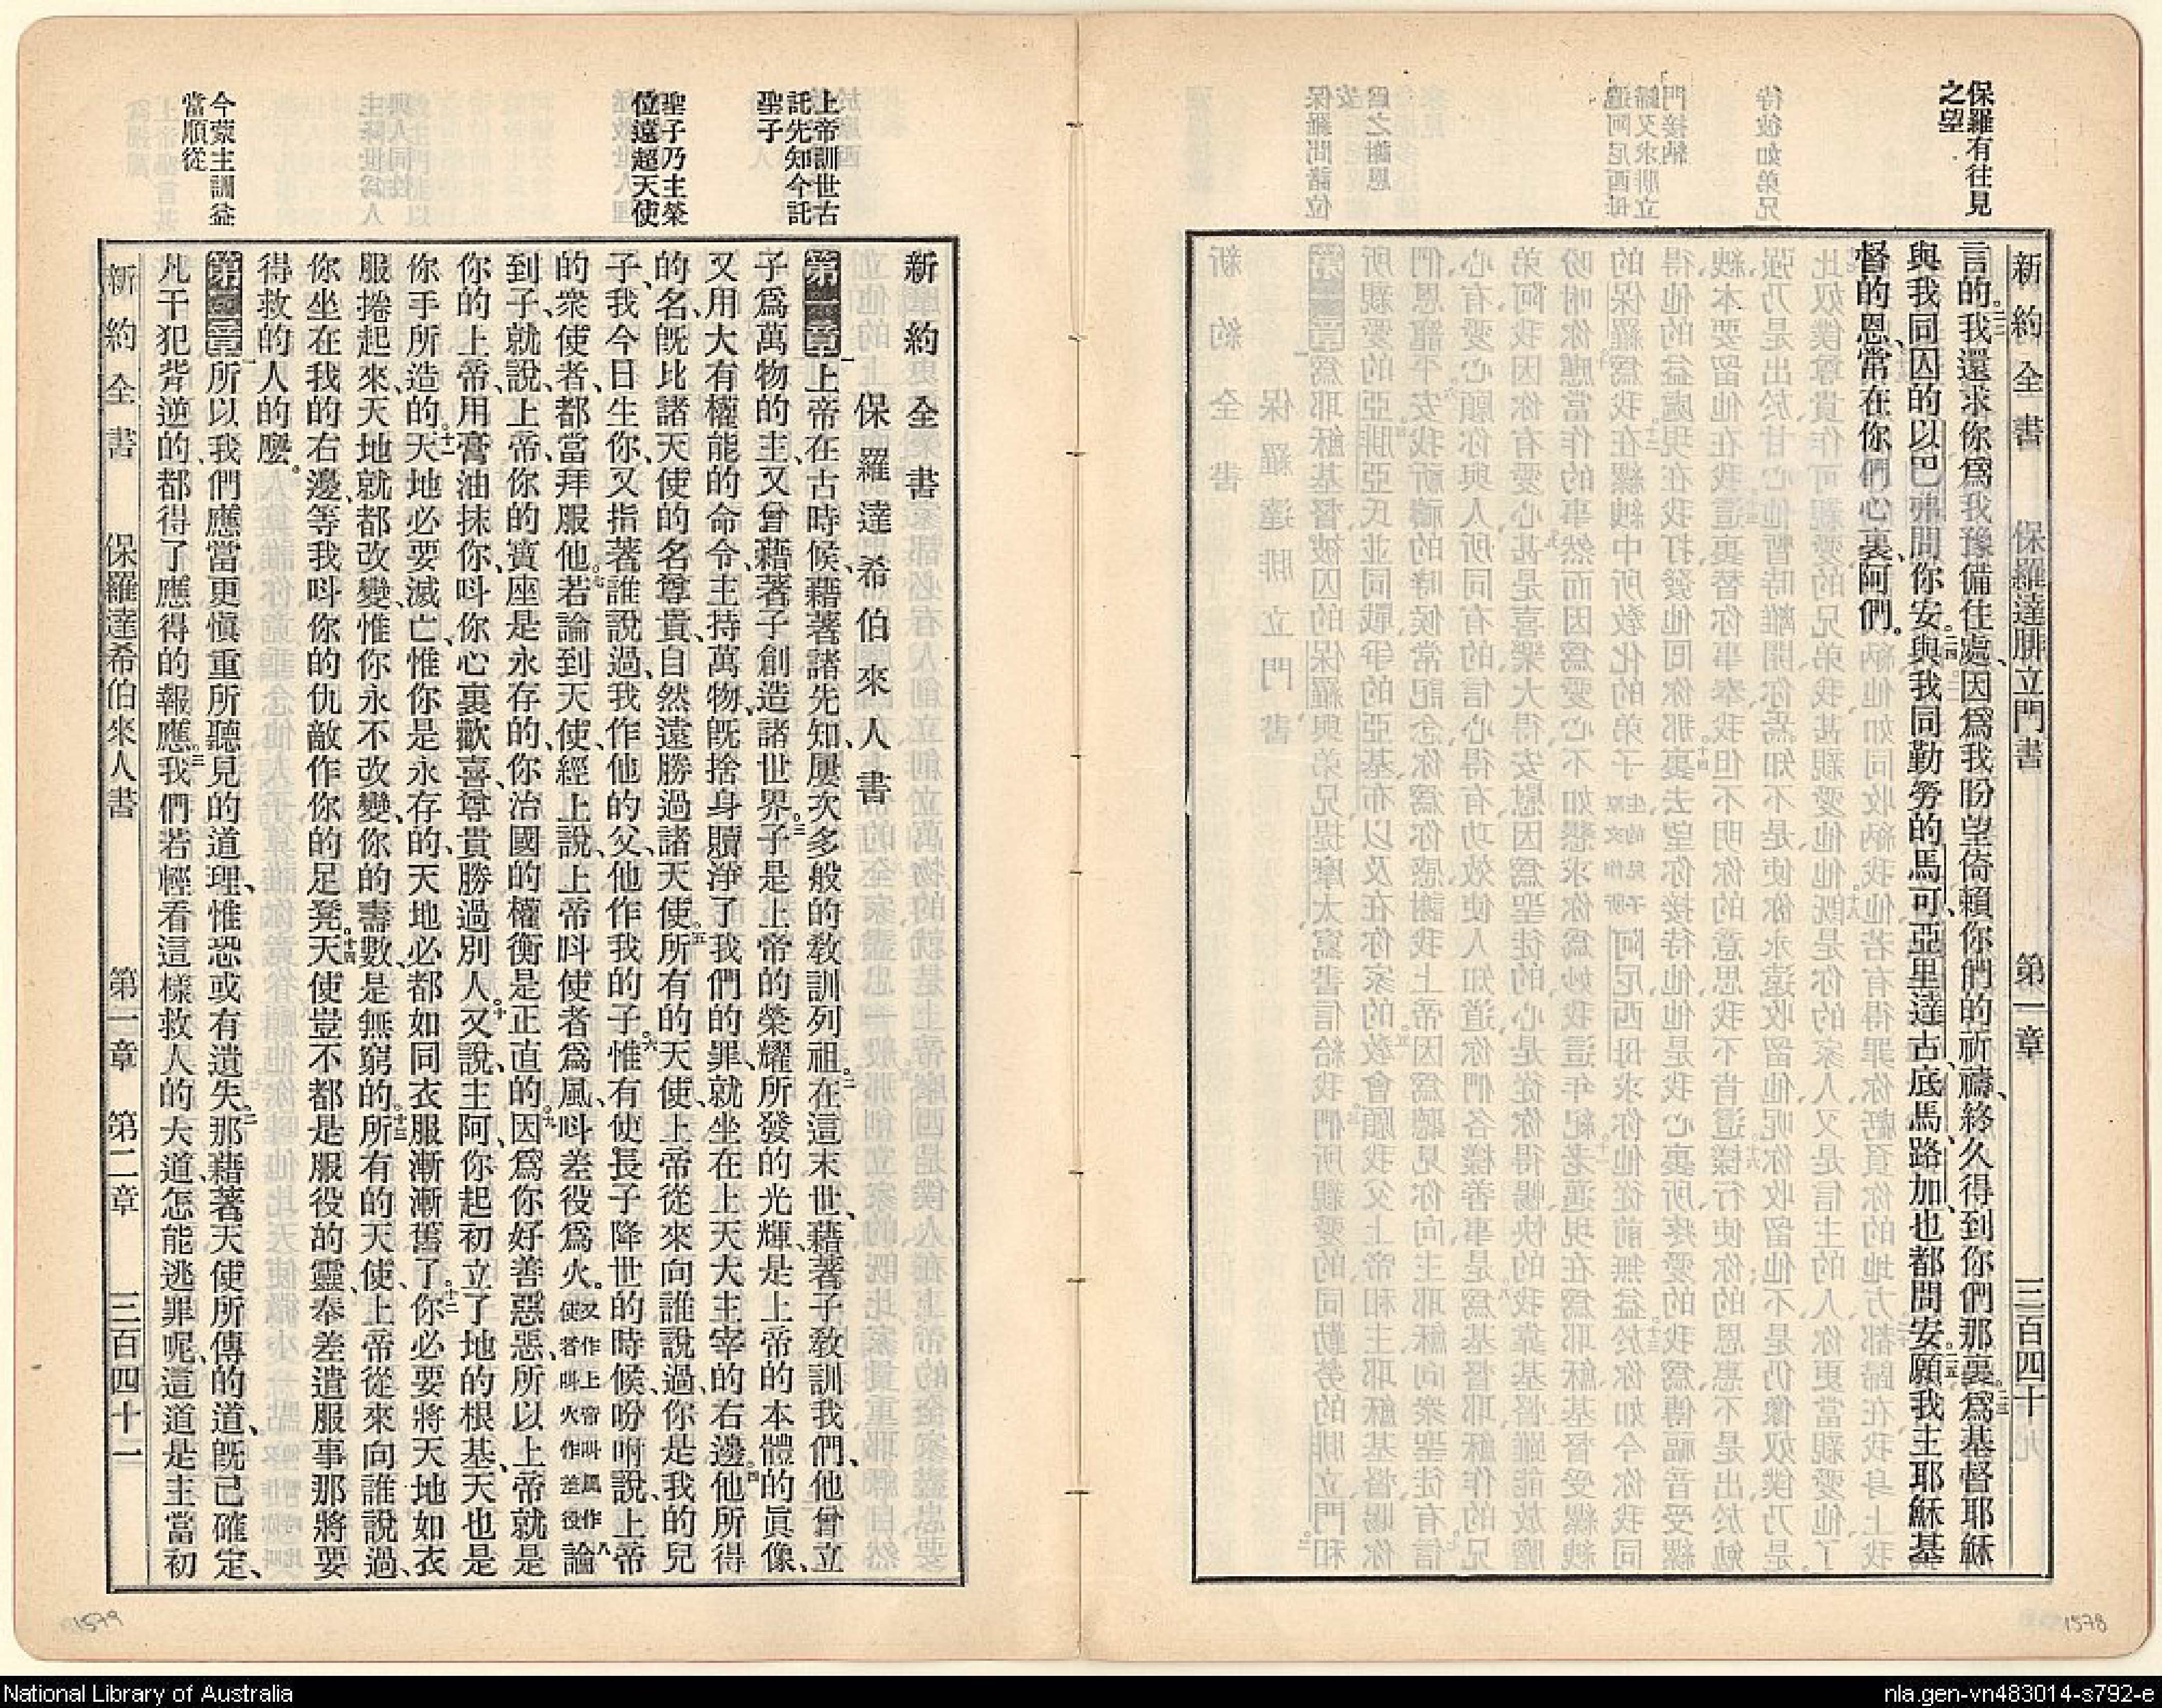 保羅有往見
之望
新約全書 保羅達腓立門書 第一章 三百四十
言的。二二我還求你爲我豫備住處、因爲我盼望倚賴你們的祈禱、終久得到你們那裏。二三爲基督耶穌
與我同囚的以巴弗問你安。二四與我同勤勞的馬可、亞里達古、底馬、路加、也都問安。二五願我主耶穌基
督的恩、常在你們心裏、阿們。
上帝訓世古
託先知今託
聖子
聖子乃主榮
位遠超天使
今蒙主訓益
當順從
新約全書
保羅達希伯來人書
第一章一上帝在古時候、藉著諸先知、屢次多般的敎訓列祖。二在這末世、藉著子敎訓我們、他曾立
子爲萬物的主、又曾藉著子創造諸世界。三子是上帝的榮耀所發的光輝、是上帝的本體的眞像、
又用大有權能的命令、主持萬物、旣捨身贖淨了我們的罪、就坐在上天大主宰的右邊。四他所得
的名、旣比諸天使的名尊貴、自然遠勝過諸天使。五所有的天使、上帝從來向誰說過、你是我的兒
子、我今日生你、又指著誰說過、我作他的父、他作我的子。六惟有使長子降世的時候、吩咐說、上帝
的衆使者、都當拜服他。七若論到天使、經上說、上帝呌使者爲風、呌差役爲火。又作上帝叫風作使者叫火作差役八論
到子、就說、上帝、你的寶座是永存的、你治國的權衡是正直的。九因爲你好善惡惡、所以上帝、就是
你的上帝、用膏油抹你、呌你心裏歡喜、尊貴勝過別人。十又說、主阿、你起初立了地的根基、天也是
你手所造的。十一天地必要滅亡、惟你是永存的、天地必都如同衣服漸漸舊了。十二你必要將天地如衣
服捲起來、天地就都改變、惟你永不改變、你的壽數、是無窮的。十三所有的天使、上帝從來向誰說過、
你坐在我的右邊、等我呌你的仇敵作你的足凳。十四天使豈不都是服役的靈、奉差遣服事那將要
得救的人的麽。
第二章一所以我們應當更愼重所聽見的道理、惟恐或有遺失。二那藉著天使所傳的道、旣已確定、
凡干犯背逆的、都得了應得的報應。三我們若輕看這樣救人的大道、怎能逃罪呢、這道是主當初
新約全書 保羅達希伯來人書 第一章 第二章 三百四十一
1579
1578
National Library of Australia
nla.gen-vn483014-s792-e